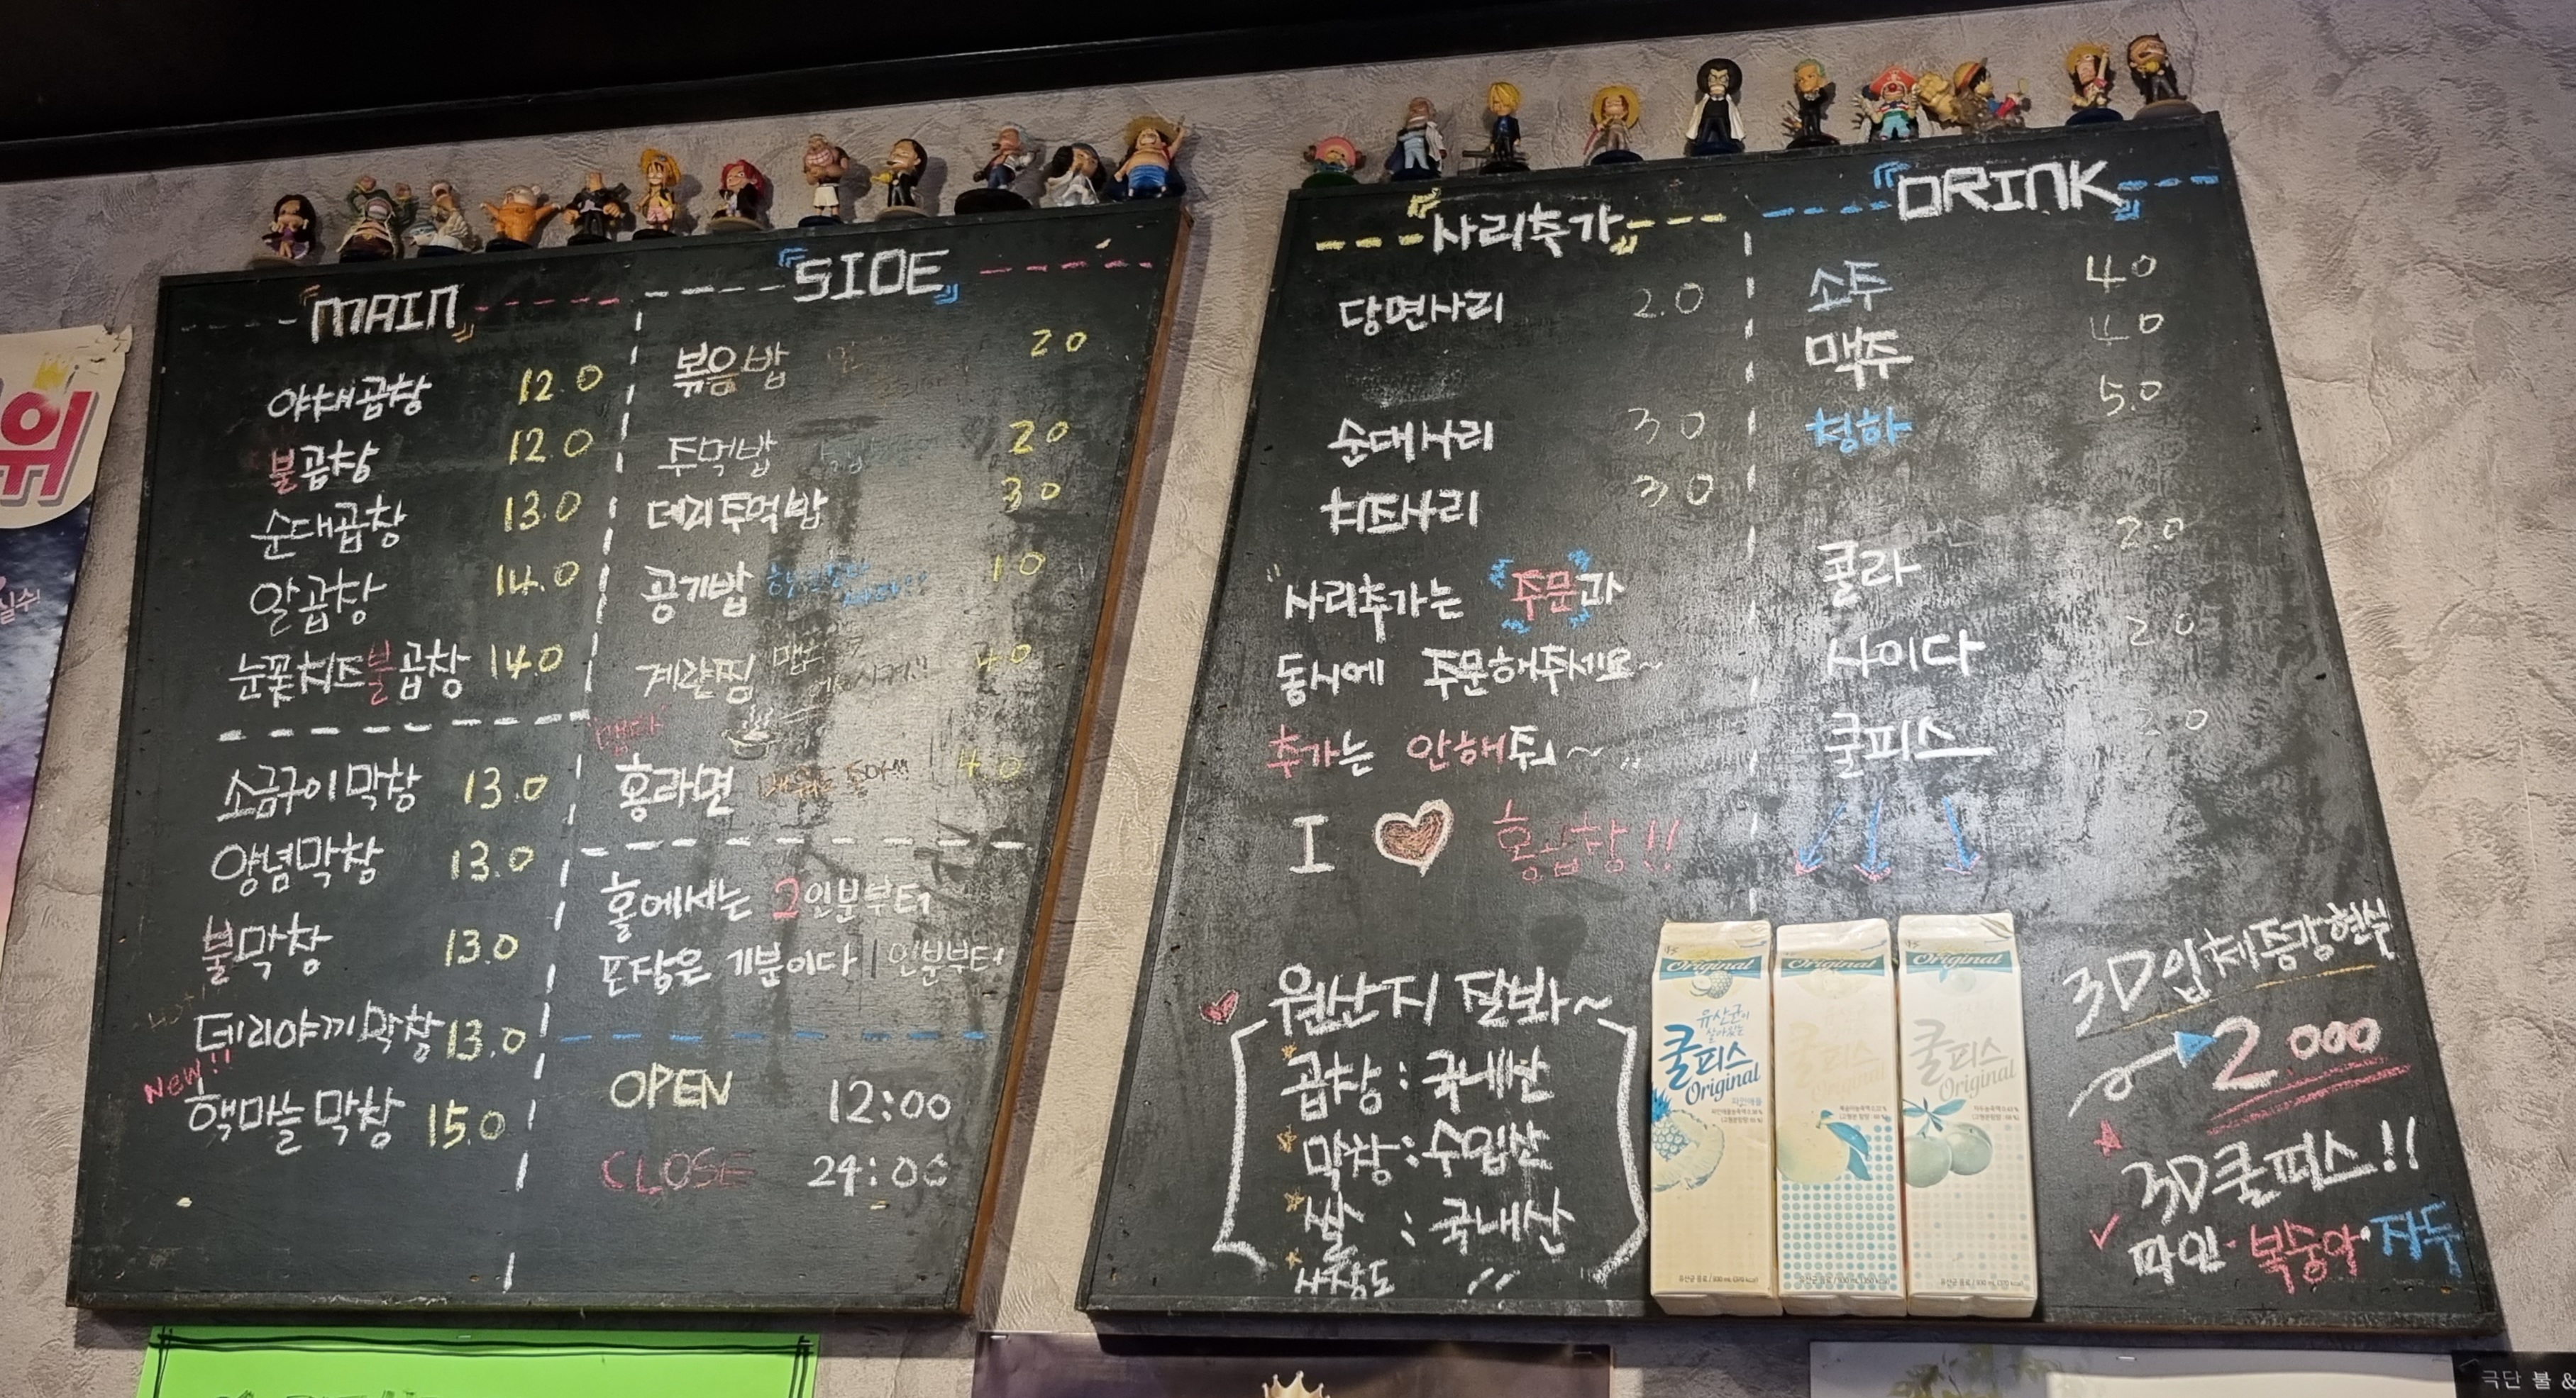 『MAIN』
야채곱창 12.0
불곱창 12.0
순대곱창 13.0
알곱창 14.0
눈꽃치즈불곱창 14.0
소금구이막창 13.0
양념막창 13.0
불막창 13.0
데리야끼막창 13.0
New!!
핵마늘막창 15.0
『SIDE』
볶음밥 2.0
주먹밥 2.0
데리주먹밥 3.0
공기밥 1.0
계란찜 4.0
맵다
홍라면 4.0
홀에서는 2인분부터
포장은 기분이다 1인분부터
OPEN 12:00
CLOSE 24:00
『사리추가』
당면사리 2.0
순대사리 3.0
치즈사리 3.0
"사리추가는 "주문"과
동시에 주문해주세요~
추가는 안해줘~"
I ♥ 홍곱창!!
원산지 잘봐~
곱창 : 국내산
막창 : 수입산
쌀 : 국내산
사장도 "
『DRINK』
소주 4.0
맥주 4.0
청하 5.0
콜라 2.0
사이다 2.0
쿨피스 2.0
Original
유산균이
살아있는
쿨피스
Original
파인애플
Original
쿨피스
Original
Original
쿨피스
Original
3D입체증강현실
2.000
3D쿨피스!!
파인·복숭아·자두
위
실수!
극단 불 &